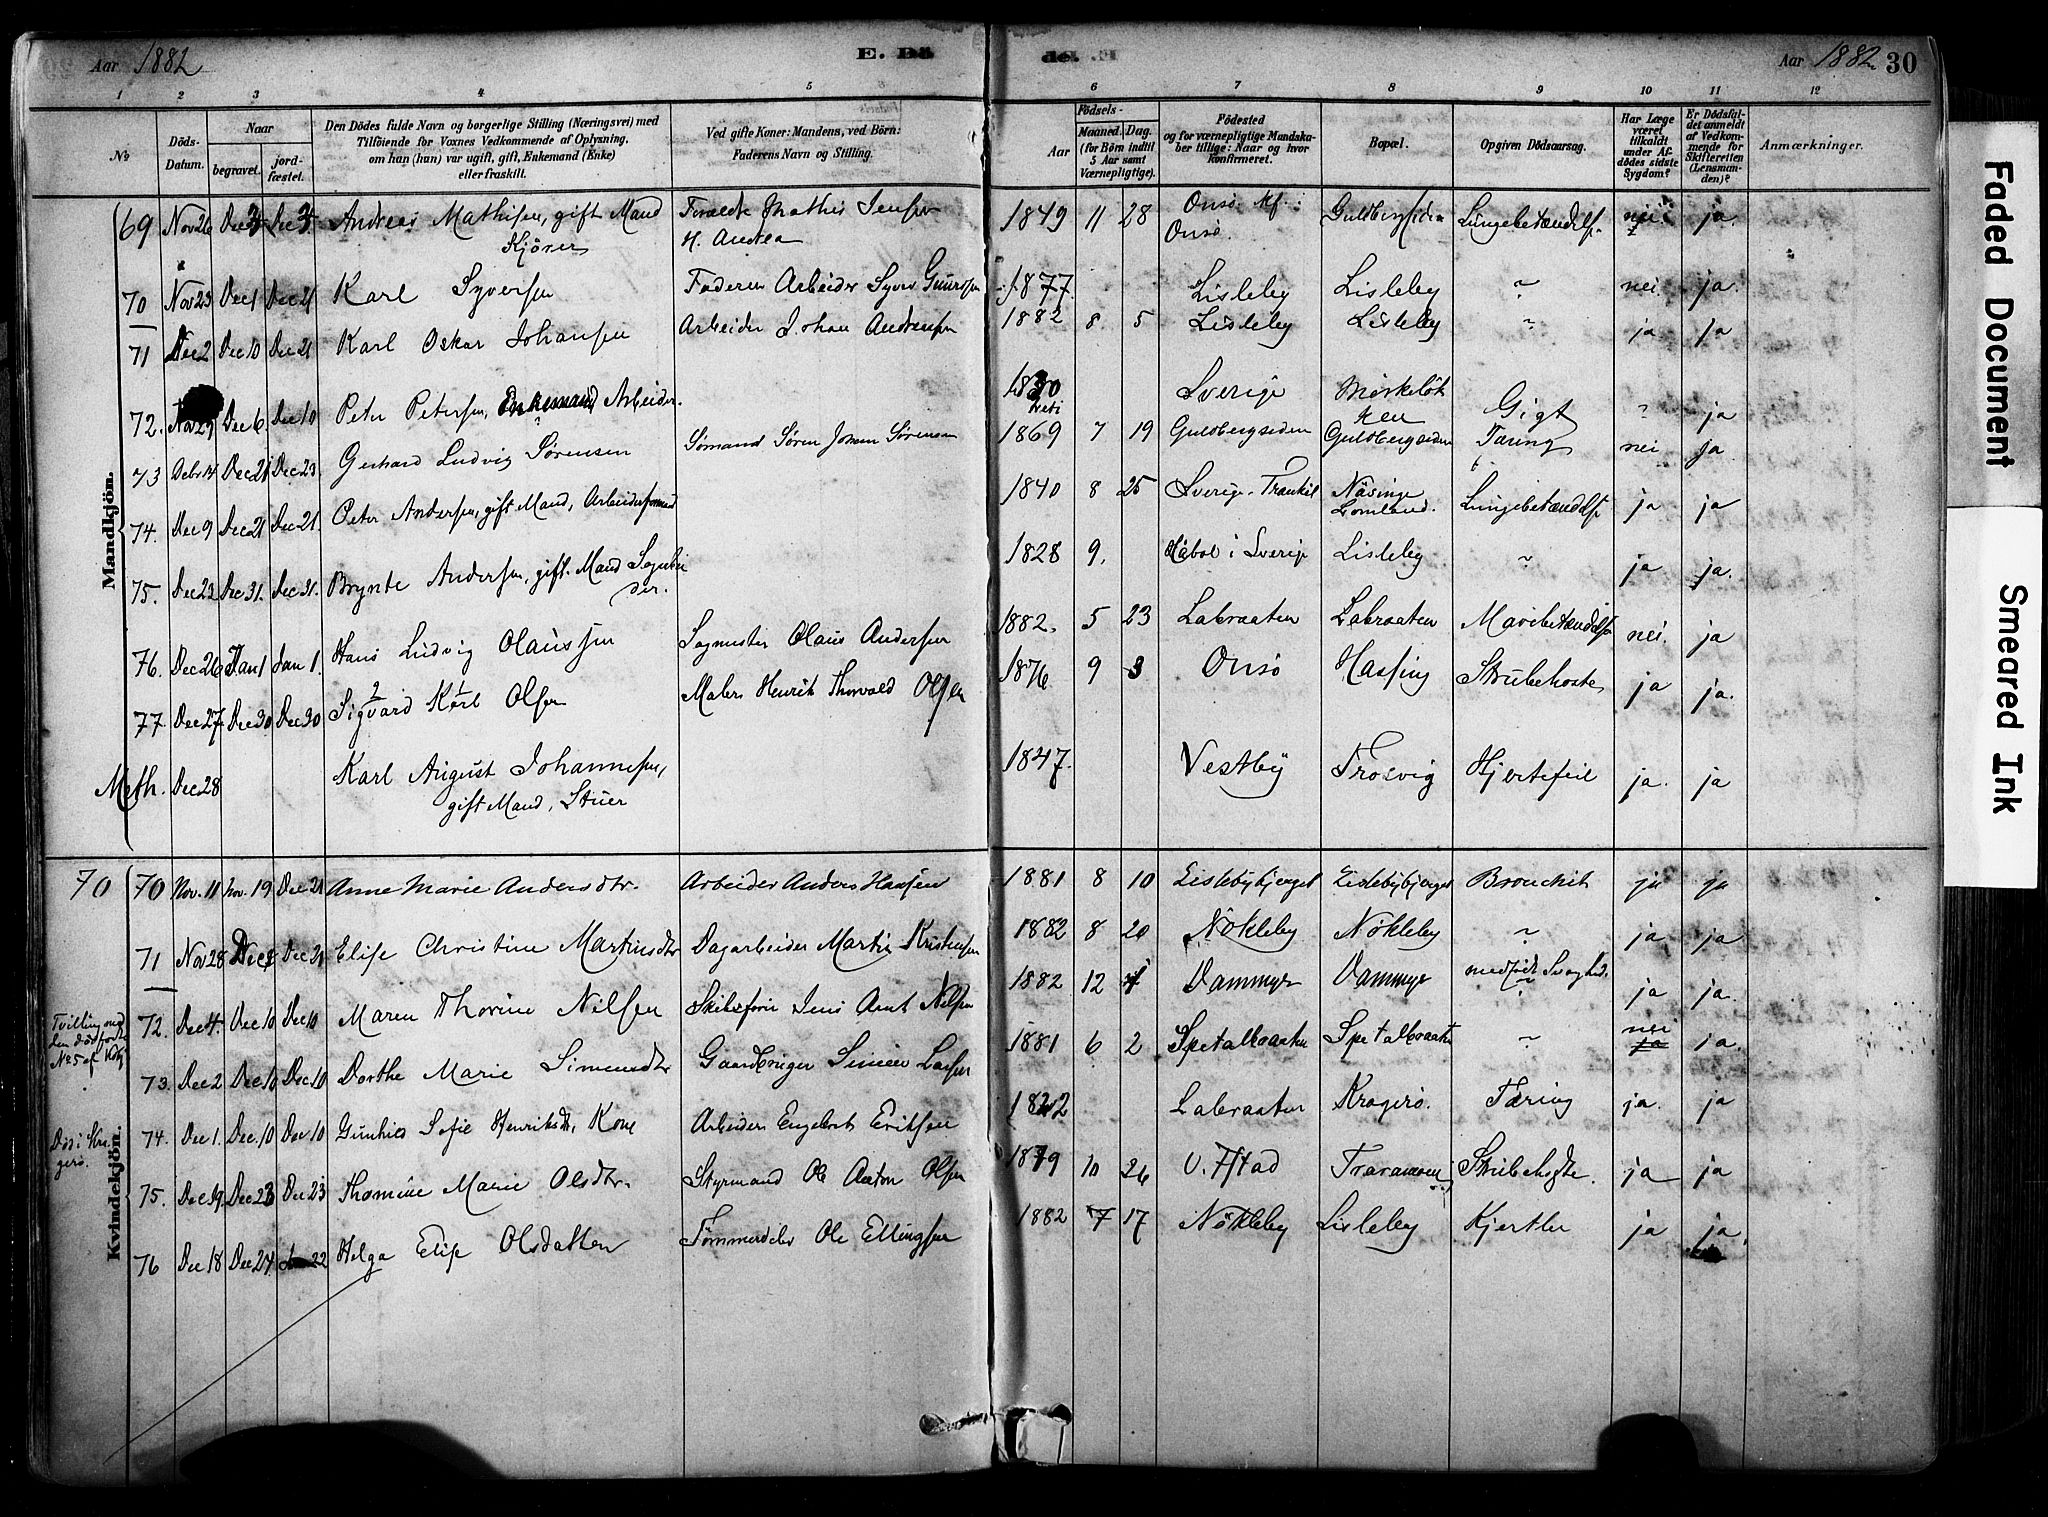 Aar 1882
E. Dö
de. E
Aar 1882
30
1 2 3 4 5 6 7 8 9 10 11 12
No
Döds-Datum.
Naar
begravet.
jord-fæstet.
Den Dödes fulde Navn og borgerlige Stilling (Næringsvei) med
Tilföiende for Voxnes Vedkommende af Oplysning.
om han (hun) var ugift, gift, Enkemand (Enke)
eller fraskilt.
Ved gifte Koner: Mandens, ved Börn:
Faderens Navn og Stilling.
Aar
Födsels-
Maaned. Dag.
(for Börn indtil
5 Aar samt
Værnepligtige).
Födested
og for værnepligtige Mandska-
ber tillige: Naar og hvor
Konfirmeret.
Bopæl.
Opgiven Dödsaarsag.
Har Læge
været
tilkaldt
under Af-
dödes sidste
Sygdom?
Er Dödsfal-
det anmeldt
af Vedkom-
mende for
Skifteretten
(Lensman-
den)?
Anmærkninger.
Mandkjön.
69 Nov 26 Andreas Mathisen, gift Mand Forældr Mathis Jensen 1849 11 28 Onsö Guldbergsiden Lungebetændelse nei ja
Kjörer H. Andrea Onsö
70 Nov 23 Dec 1 Dec 21 Karl Syversen Faderen Arbeider Syver 1877 Lisleby Lisleby " nei ja
71 Dec 2 Dec 10 Dec 21 Karl Oskar Johansen Arbeider Johan Andreasen 1882 8 5 Lisleby Lisleby " ja ja
72. Nov 29 Dec 6. Dec 10 Peter Petersen, Enkemand Arbeider. 1830 Sverige Gigt " ja
73 Debr 14 Dec 21 Dec 23 Gerhard Ludvig Sörensen Sömand Sören Johan Sörensen 1869 7 19 Guldbergsiden Guldbergsiden Tæring nei ja
74. Dec 9 Dec 21 Dec 21. Peter Andersen, gift Mand, Arbeidsformand 1840 8 25 Sverige Näsinge Lungebetændelse ja ja
Lomland.
75. Dec 23 Dec 31. Dec 31. Brynte Andersen, gift Mand 1828 9. i Sverige Lisleby " ja ja.
76. Dec 26 Jan 1 Jan 1. Hans Ludvig Olaussen Sagmester Olaus Andersen 1882. 5 23 Labraaten Labraaten Mavebetændelse nei. ja
77. Dec 27 Dec 30 Dec 30 Sigvard Karl Olsen Maler Henrik Thorvald Olsen 1876 9 3 Onsö Strubehoste ja ja.
Meth. Dec. 28 Karl August Johannesen, 1847. Vestby Trosvig Hjertefeil ja. ja
gift Mand, Stuer
Kvindekjön.
70 70 Nov. 11 Nov. 19 Dec 21 Anne Marie Andersdtr. Arbeider Anders Hansen 1881 8 10 Lislebybjerget Lislebybjerget Bronchit ja ja
71 Nov 28 Dec 8 Dec 21 Elise Christine Martinsdtr Dagarbeider Martin Kristensen 1882 8 20 Nökleby Nökleby " ja ja
72. Dec 4. Dec 10 Dec 10 Maren Thorine Nilsen Jens Nilsen 1882 12 4 Dammyr Dammyr medfödt Svaghed ja ja.
Tvilling
73. Dec 2 Dec 10 Dec 10 Dorthe Marie Simensdtr Gaardbruger Simen Larsen 1881 6 2 Spetalbraaten Spetalbraaten " nei ja ja.
74. Dec 1. Dec. 10 Dec 10 Gunhild Sofie Henriksdtr, Kone Arbeider Engebret Eriksen Labraaten Kragerö. Tæring ja. ja
Död i Kragerö.
75. Dec 19 Dec 23 Dec 23 Thomine Marie Olsdtr. Styrmand Ole Anton Olsen 1879 10 26 Strubehoste. ja ja
76 Dec 18 Dec 24 22 Helga Elise Olsdatter Ole Ellingsen 1882 7 17 Nökleby Lisleby Kjertler ja ja.
Faded Document
Smeared Ink